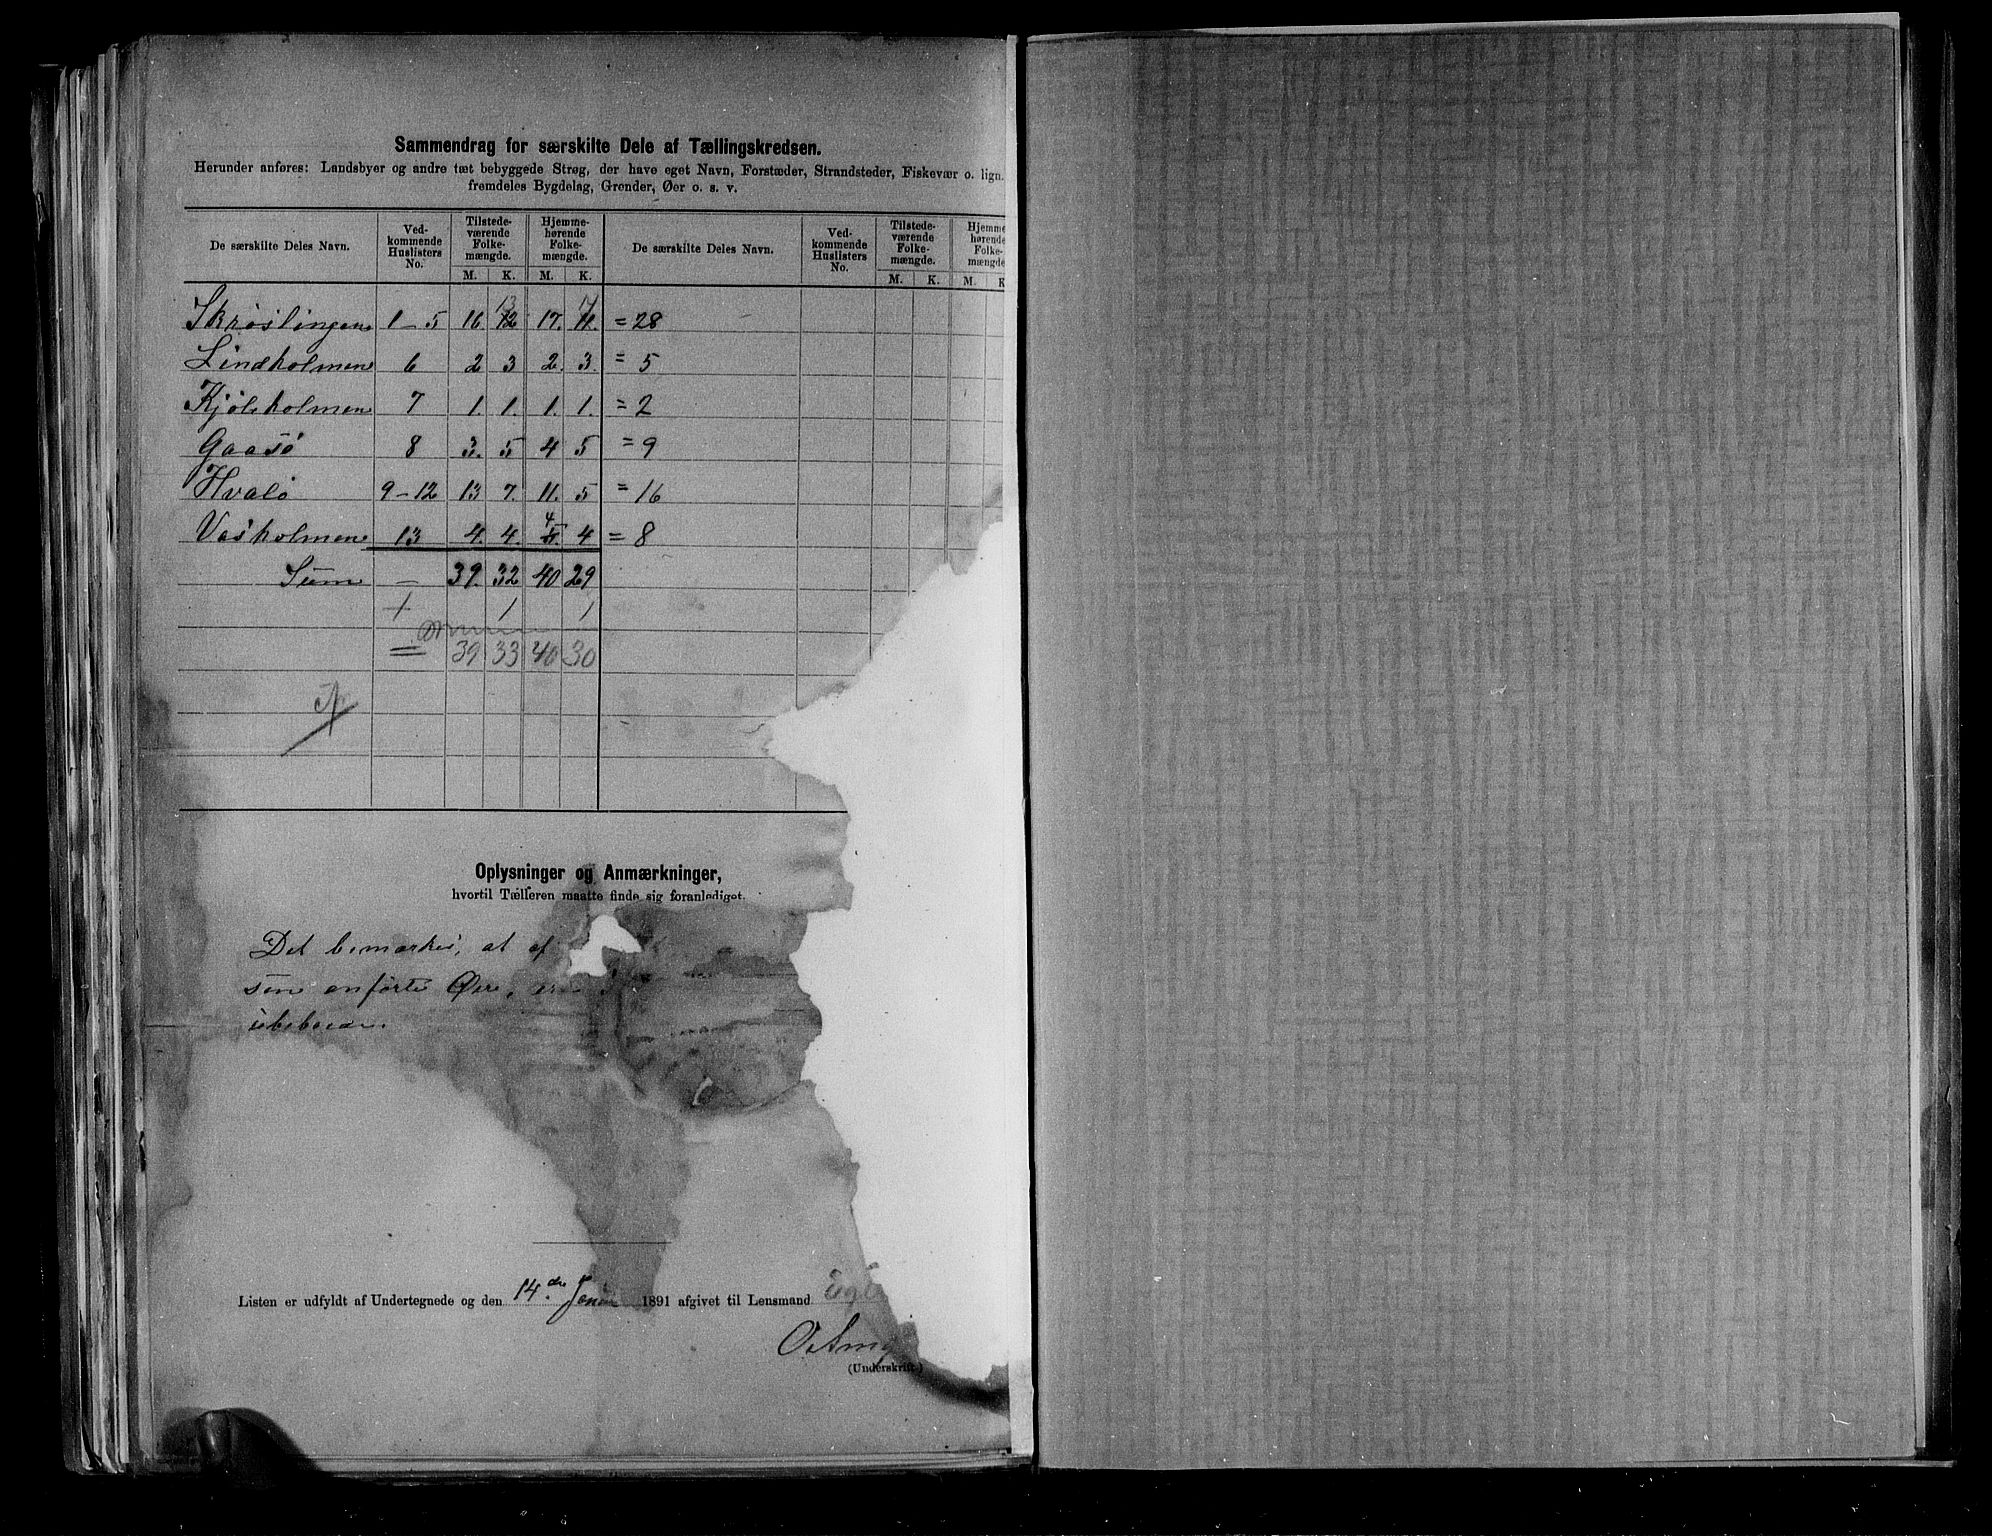 Sammendrag for særskilte Dele af Tællingskredsen.
Herunder anføres: Landsbyer og andre tæt bebyggede Strøg, der have eget Navn, Forstæder, Strandsteder, Fiskevær o. lign.
fremdeles Bygdelag, Grender, Øer o. s. v.
De særskilte Deles Navn. Ved-kommende Huslisters No. Tilstede-værende Folke-mængde. Hjemme-hørende Folke-mængde. De særskilte Deles Navn. Ved-kommende Huslisters No. Tilstede-værende Folke-mængde. Hjemme-hørende Folke-mængde
M. K. M. K. M. K. M. K
13
Skrøslingen 1-5 16 12 17. 11. = 28
Lindholmen 6 2 3 2. 3. = 5
Kjølsholmen 7 1. 1. 1. 1. = 2
Gaasø 8 3. 5 4 5 = 9
Hvalø 9-12 13 7. 11. 5 = 16
4
Vasholmen 13 4. 4. 5. 4 = 8
Sum — 39. 32 40 29
+ 1 1
= 39 33 40 30
Oplysninger og Anmærkninger,
hvortil Tælleren maatte finde sig foranlediget.
Det bemærkes, at af
som anførte Øer,
ubeboede.
Listen er udfyldt af Undertegnede og den 14.de Januar 1891 afgivet til Lensmand
(Underskrift.)